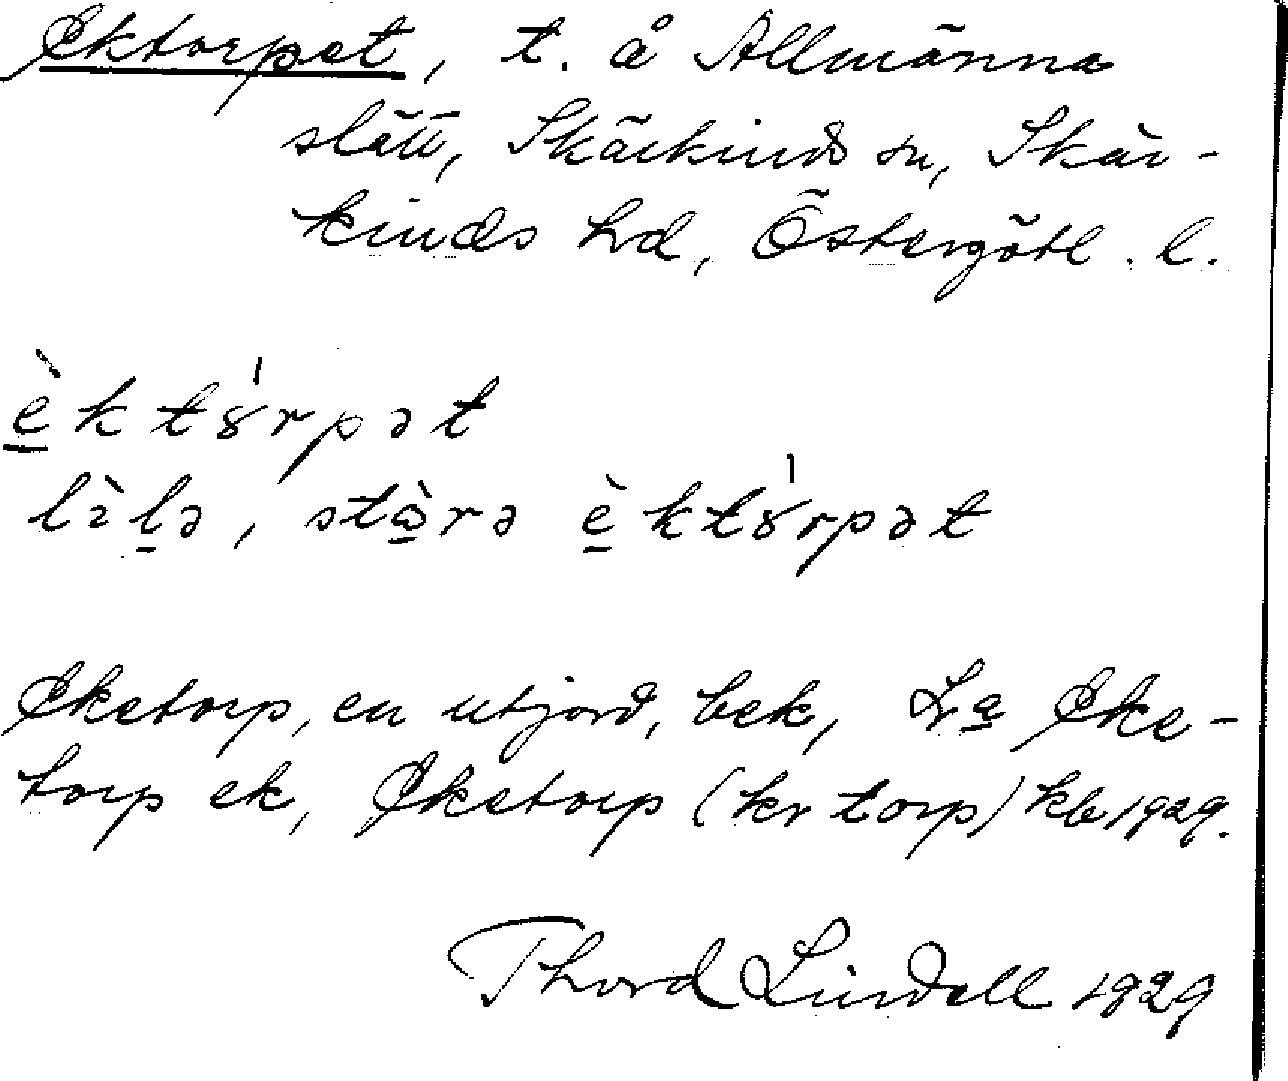 Ektorpet, t. å Allmänna
slätt, Skärkinds sn, Skär-
kinds hd, Östergötl. l.
è̱ktȣ́rpət
lìḻə, stɷ̱̀rə è̱ktȣ́rpət
Eketorp, en utjord, bek, Eke-
torp ek, Eketorp (kr torp) kb 1929.
Thord Lindell 1929